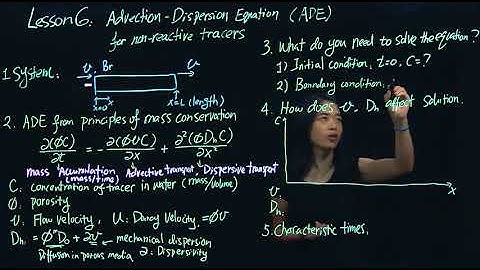 Lesson 6: Advection-Dispersion Equation (ADE)
for non-reactive tracers
1. System: v Br v
x=0 x=L (length)
2. ADE from principles of mass conservation
∂(ØC)/∂t = -∂(ØvC)/∂x + ∂²(ØDhC)/∂x²
mass Accumulation (mass/time) Advective transport Dispersive transport
C: concentration of tracer in water (mass/volume)
Ø: porosity
v: Flow velocity, u: Darcy velocity = Øv
Dh: = ØᵐD₀ + ∂v mechanical dispersion
Diffusion in porous media ∂: Dispersivity
3. What do you need to solve the equation?
1) Initial condition, t=0, C=?
2) Boundary condition,
4. How does v, Dh affect solution.
C
x
v
Dh:
5. Characteristic times,